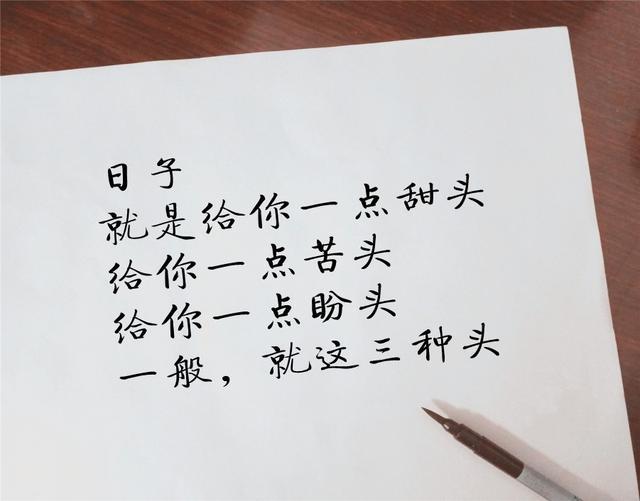 日子
就是给你一点甜头
给你一点苦头
给你一点盼头
一般，就这三种头